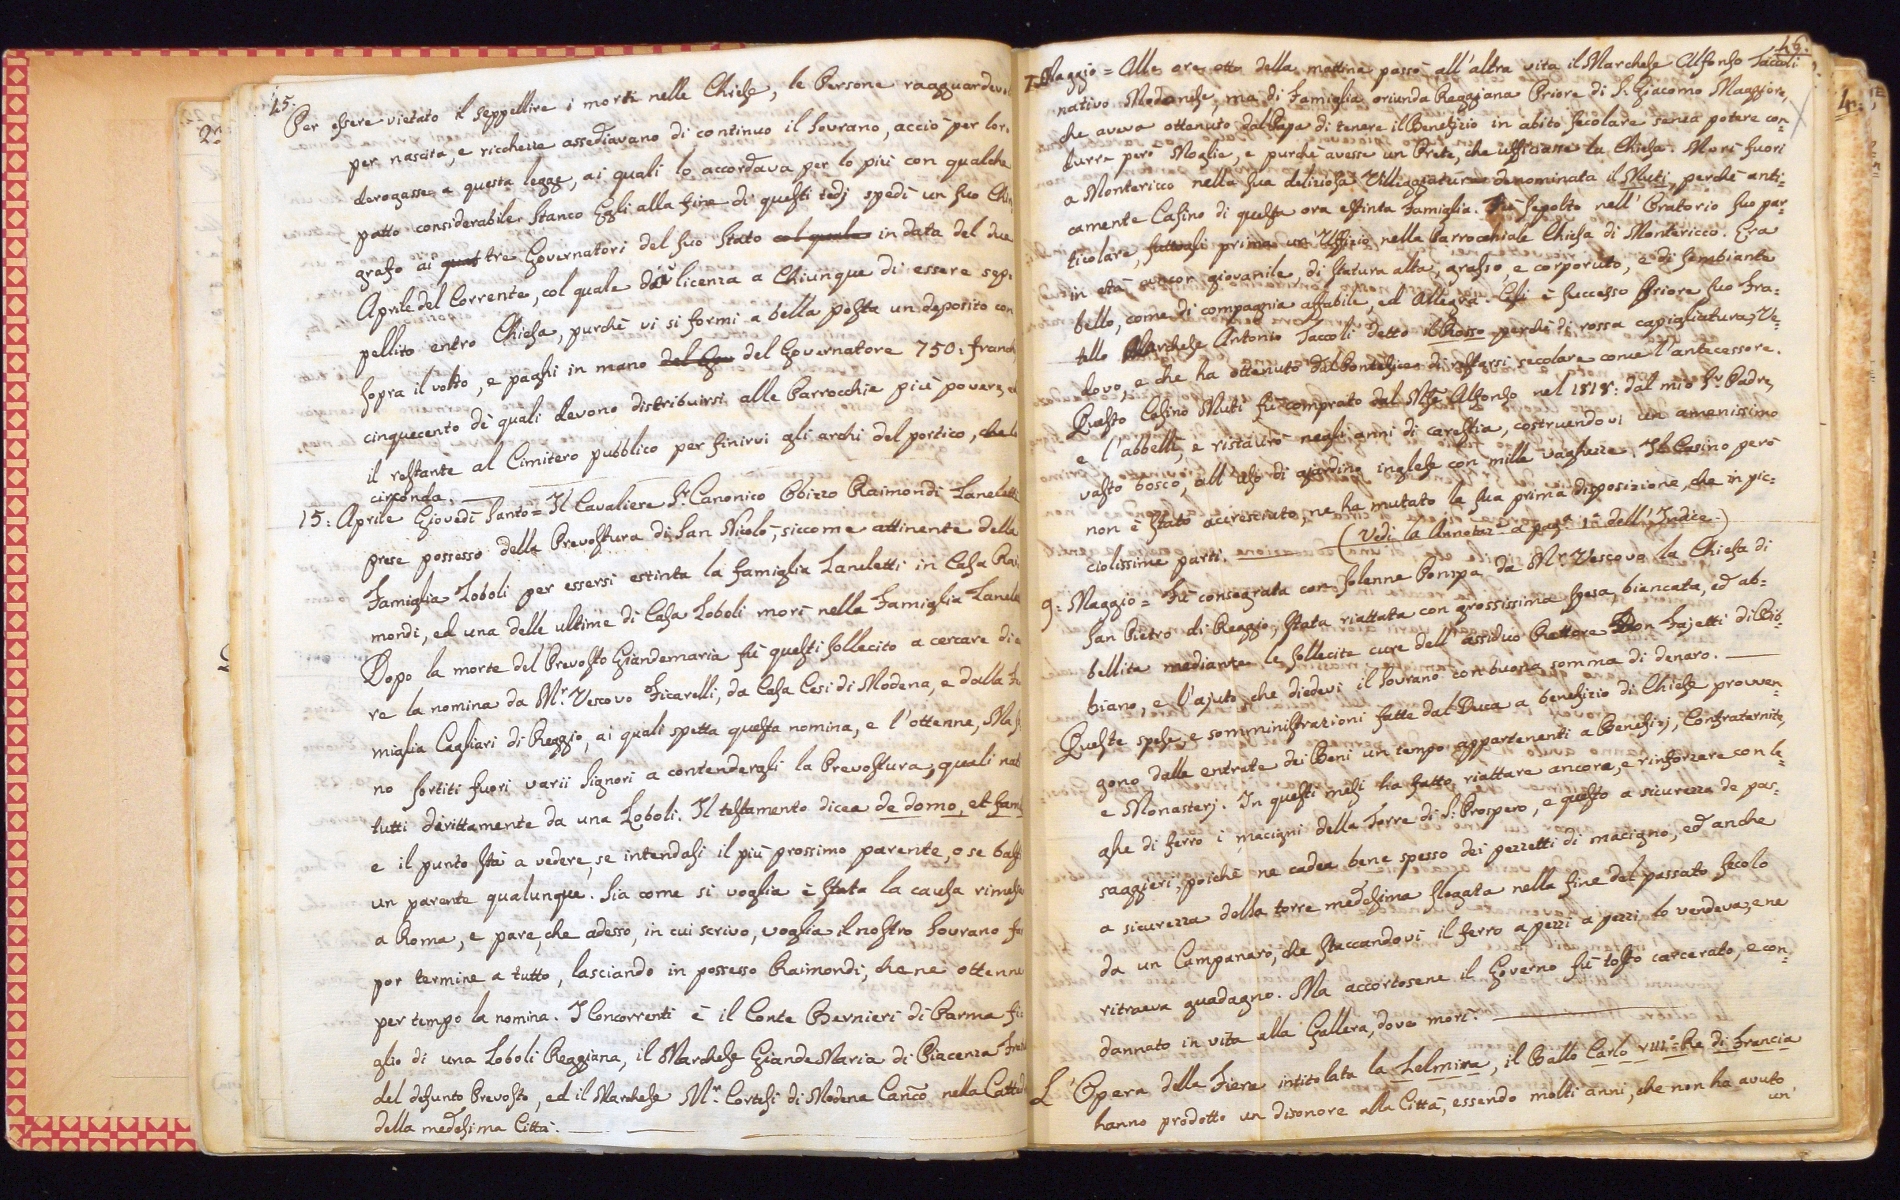 45.
Per essere vietato il seppellire i morti nelle Chiese, le Persone ragguardevo
per nascita, e ricchezze assediavano di continuo il Sovrano, acciò per lor
derogasse a questa legge, ai quali lo accordava per lo più con qualche
patto considerabile. Stanco Egli alla fine di questi tedj spedì un suo Chiro
grafo ai quat tre Governatori del suo Stato col quale in data del due
Aprile del Corrente, col quale dà licenza a Chiunque di essere sep
pellito entro Chiesa, purchè vi si formi a bella posta un deposito con
sopra il volto, e paghi in mano del Go del Governatore 750: franch
cinquecento de' quali devono distribuirsi alle Parrocchie più povere, ed
il restante al Cimitero pubblico per finirvi gli archi del portico, che lo
circonda.
15: Aprile Giovedì Santo = Il Cavaliere Sr. Canonico Obizzo Raimondi Laneletti
prese possesso della Prevostura di San Nicolò, siccome attinente della
Famiglia Loboli per essersi estinta la famiglia Laneletti in Casa Rai
mondi, ed una delle ultime di Casa Loboli morì nella Famiglia Lanele
Dopo la morte del Prevosto Giandemaria fù questi sollecito a cercare di a
re la nomina da Mr. Vescovo Ficarelli, da Casa Cesi di Modena, e dalla Fa
miglia Cagliari di Reggio, ai quali spetta questa nomina, e l'ottenne, Ma s
no sortiti fuori varii Signori a contendergli la Prevostura, quali nati
tutti dirittamente da una Loboli. Il testamento dicea de domo, et fami
e il punto stà a vedere, se intendasi il più prossimo parente, o se basti
un parente qualunque. Sia come si voglia è stata la causa rimessa
a Roma, e pare, che adesso, in cui scrivo, voglia il nostro Sovrano far
por termine a tutto, lasciando in possesso Raimondi, che ne ottenne
per tempo la nomina. I Concorrenti è il Conte Bernieri di Parma fi
glio di una Loboli Reggiana, il Marchese Giande Maria di Piacenza Frate
del defunto Prevosto, ed il Marchese Mr. Cortesi di Modena Canco. nella Catted
della medesima Città.
46.
7. Maggio = Alle ore otto della mattina passò all'altra vita il Marchese Alfonso Taccoli
nativo Modanese, ma di Famiglia oriunda Reggiana Priore di S. Giacomo Maggiore,
che aveva ottenuto dal Papa di tenere il Benefizio in abito secolare senza potere con=
durre però Moglie, e purchè avesse un Prete, che ufficiasse la Chiesa. Morì fuori
a Montericco nella sua deliziosa Villeggiatura denominata il Muti, perchè anti=
camente Casino di questa ora estinta Famiglia. Fù sepolto nell'Oratorio suo par=
ticolare, fattogli prima un Uffizio nella Parrocchiale Chiesa di Montericco. Era
in età ancor giovanile, di statura alta, grasso, e corporuto, e di sembiante
bello, come di compagnia affabile, ed allegra. è successo Priore suo Fra=
tello Marchese Antonio Taccoli detto il Rosso perchè di rossa capigliatura, Ve=
dovo, e che ha ottenuto dal Pontefice di starsi secolare come l'antecessore.
Questo Casino Muti fù comprato dal Mse Alfonso nel 1818: dal mio Sr. Padre,
e l'abbellì, e ristaurò negli anni di carestia, costruendovi un amenissimo
vasto bosco, all'uso di giardino inglese con mille vaghezze. Il Casino però
non è stato accresciuto, ne ha mutato la sua prima disposizione, che in pic=
ciolissime parti. (Vedi la Annotaz.e a pag.a 1.a dell'Indice)
9: Maggio = Fù consegrata con solenne Pompa da Mr. Vescovo la Chiesa di
San Pietro di Reggio, stata riattata con grossissima spesa, biancata, ed ab=
bellita mediante le sollecite cure dell'assiduo Rettore Don Fajetti di Bib=
biano, e l'ajuto, che diedevi il Sovrano con buona somma di denaro.
Queste spese, e somministrazioni fatte dal Duca a benefizio di Chiese provven=
gono dalle entrate dei Beni un tempo appartenenti a Benefizj, Confraternite,
e Monasterj. In questi mesi ha fatto riattare ancora, e rinforzare con le=
ghe di ferro i macigni della Torre di S: Prospero, e questo a sicurezza de pas=
saggieri, poichè ne cadea bene spesso dei pezzetti di macigno, ed anche
a sicurezza della torre medesima slegata nella fine del passato secolo
da un Campanaro, che staccandovi il ferro a pezzi a pezzi, lo vendeva, e ne
ritraeva guadagno. Ma accortosene il Governo fù tosto carcerato, e con=
dannato in vita alla Gallera, dove morì.
L'Opera della Fiera intitolata la Zelmira, il Ballo Carlo VIII.o Re di Francia
hanno prodotto un disonore alla Città, essendo molti anni, che non ha avuto
un